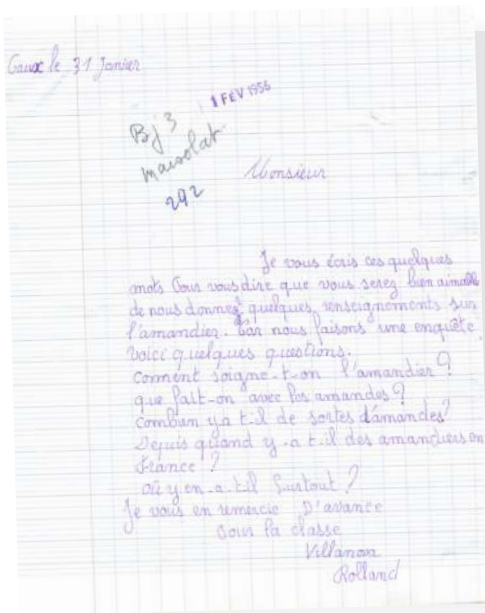 Caux le 31 Janvier
1 FEV 1956
Bj 3
292
Monsieur
Je vous écris ces quelques
mots Pour vous dire que vous serez bien aimable
de nous donner quelques renseignements sur
l'amandier. Car nous faisons une enquête.
Voici quelques questions.
Comment soigne-t-on l'amandier ?
que fait-on avec les amandes ?
Combien y a t-il de sortes d'amandes ?
Depuis quand y-a t-il des amandiers en
France ?
Où y en-a-t-il Surtout ?
Je vous en remercie D'avance
Pour la classe
Villanova
Rolland